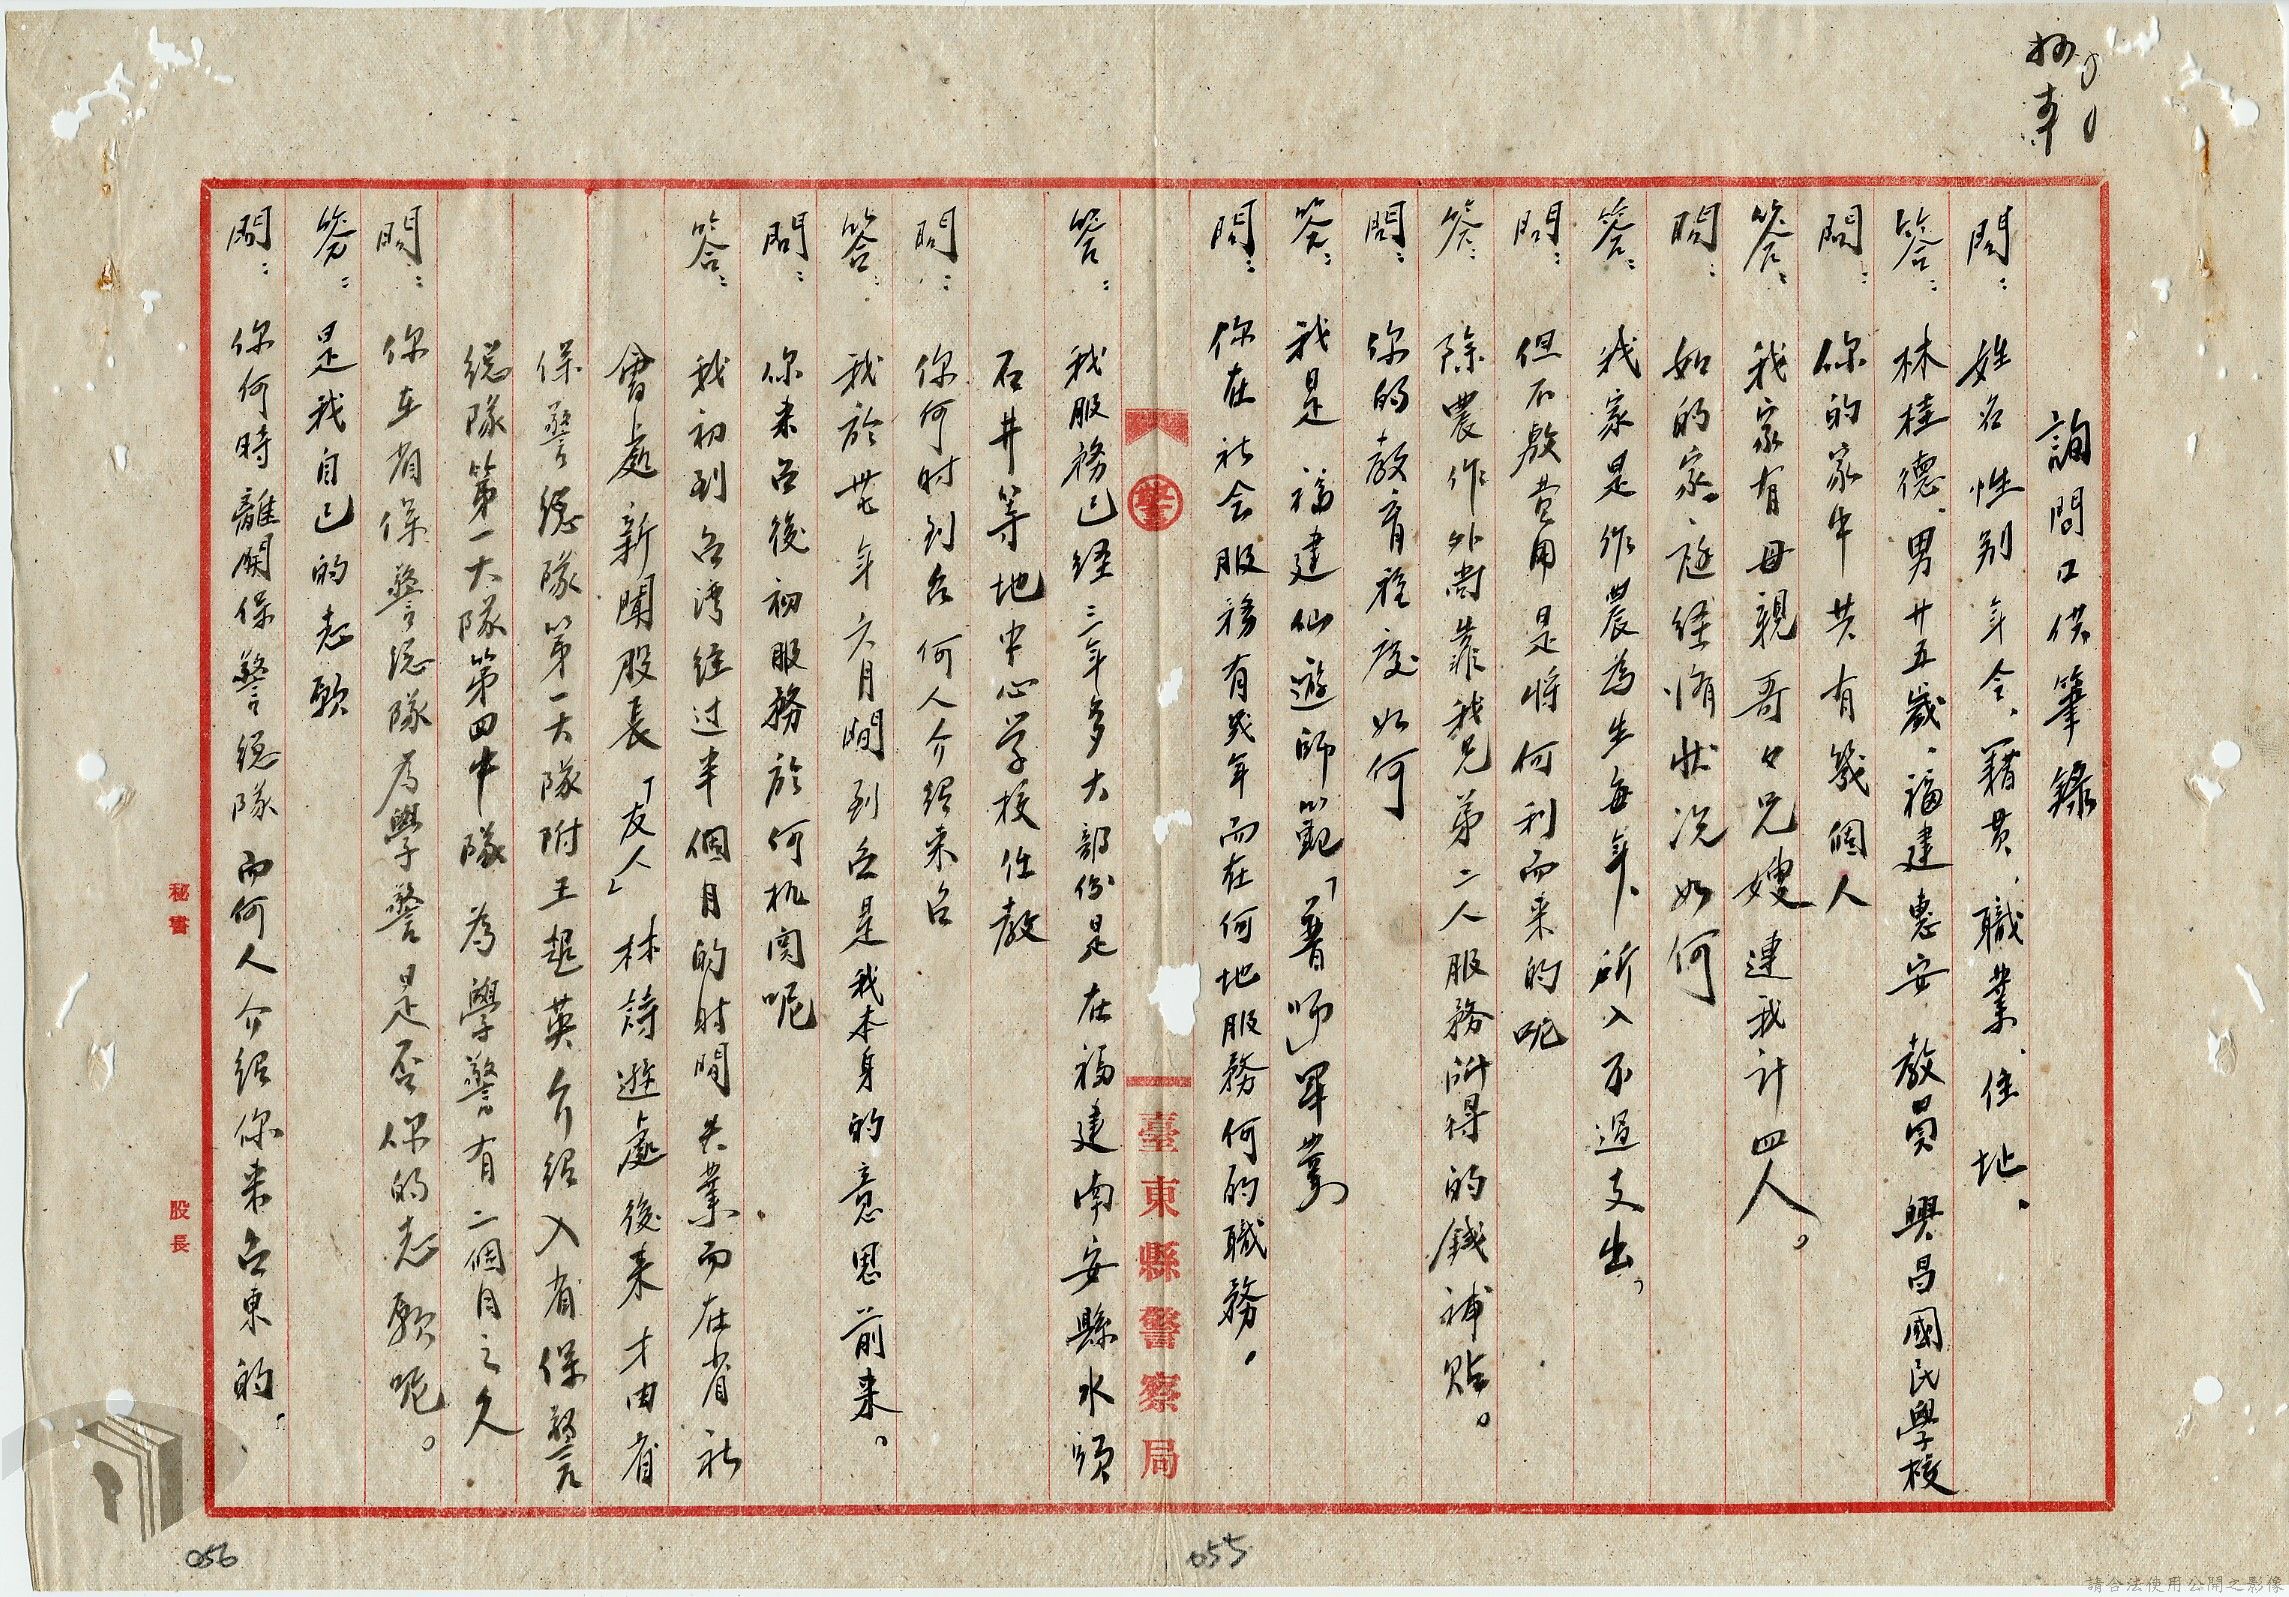 詢問口供筆錄
問：姓名性别年令、籍貫、職業、住址。
答：林桂德、男廿五歲、福建惠安 教員 興昌國民學校
問：你的家中共有幾個人
答：我家有母親哥々兄嫂連我計四人。
問：如的家。近経済状况如何
答：我家是作農為生每年、所入不過支出。
問：但不敷費用是將何利而来的呢
答：除農作外尚靠我兄弟二人服務所得的錢補贴。
問：你的教育程度如何
答：我是福建仙遊師範「普师」畢業
問：你在社会服務有幾年而在何地服務何的職務。
臺東縣警察局
答：我服務已经三年多大部份是在福建南安縣水頭
石井等地中心学校任教
問：你何时到台何人介绍来台
答：我於卅七年六月間到台是我本身的意思前来。
問：你来台後初服務於何机関呢
答：我初到台湾经过半個月的时間失業而在省社
會處新聞股長「友人」林詩遊處後来才由省
保警總隊第一大隊附王超英介绍入省保警
總隊第一大隊第四中隊為學警有二個月之久
問：你在省保警總隊為學警是否你的志願呢。
答：是我自己的志願
問：你何時離開保警總隊而何人介绍你来台東的。
秘書
股長
055
056
請合法使用公開之影像